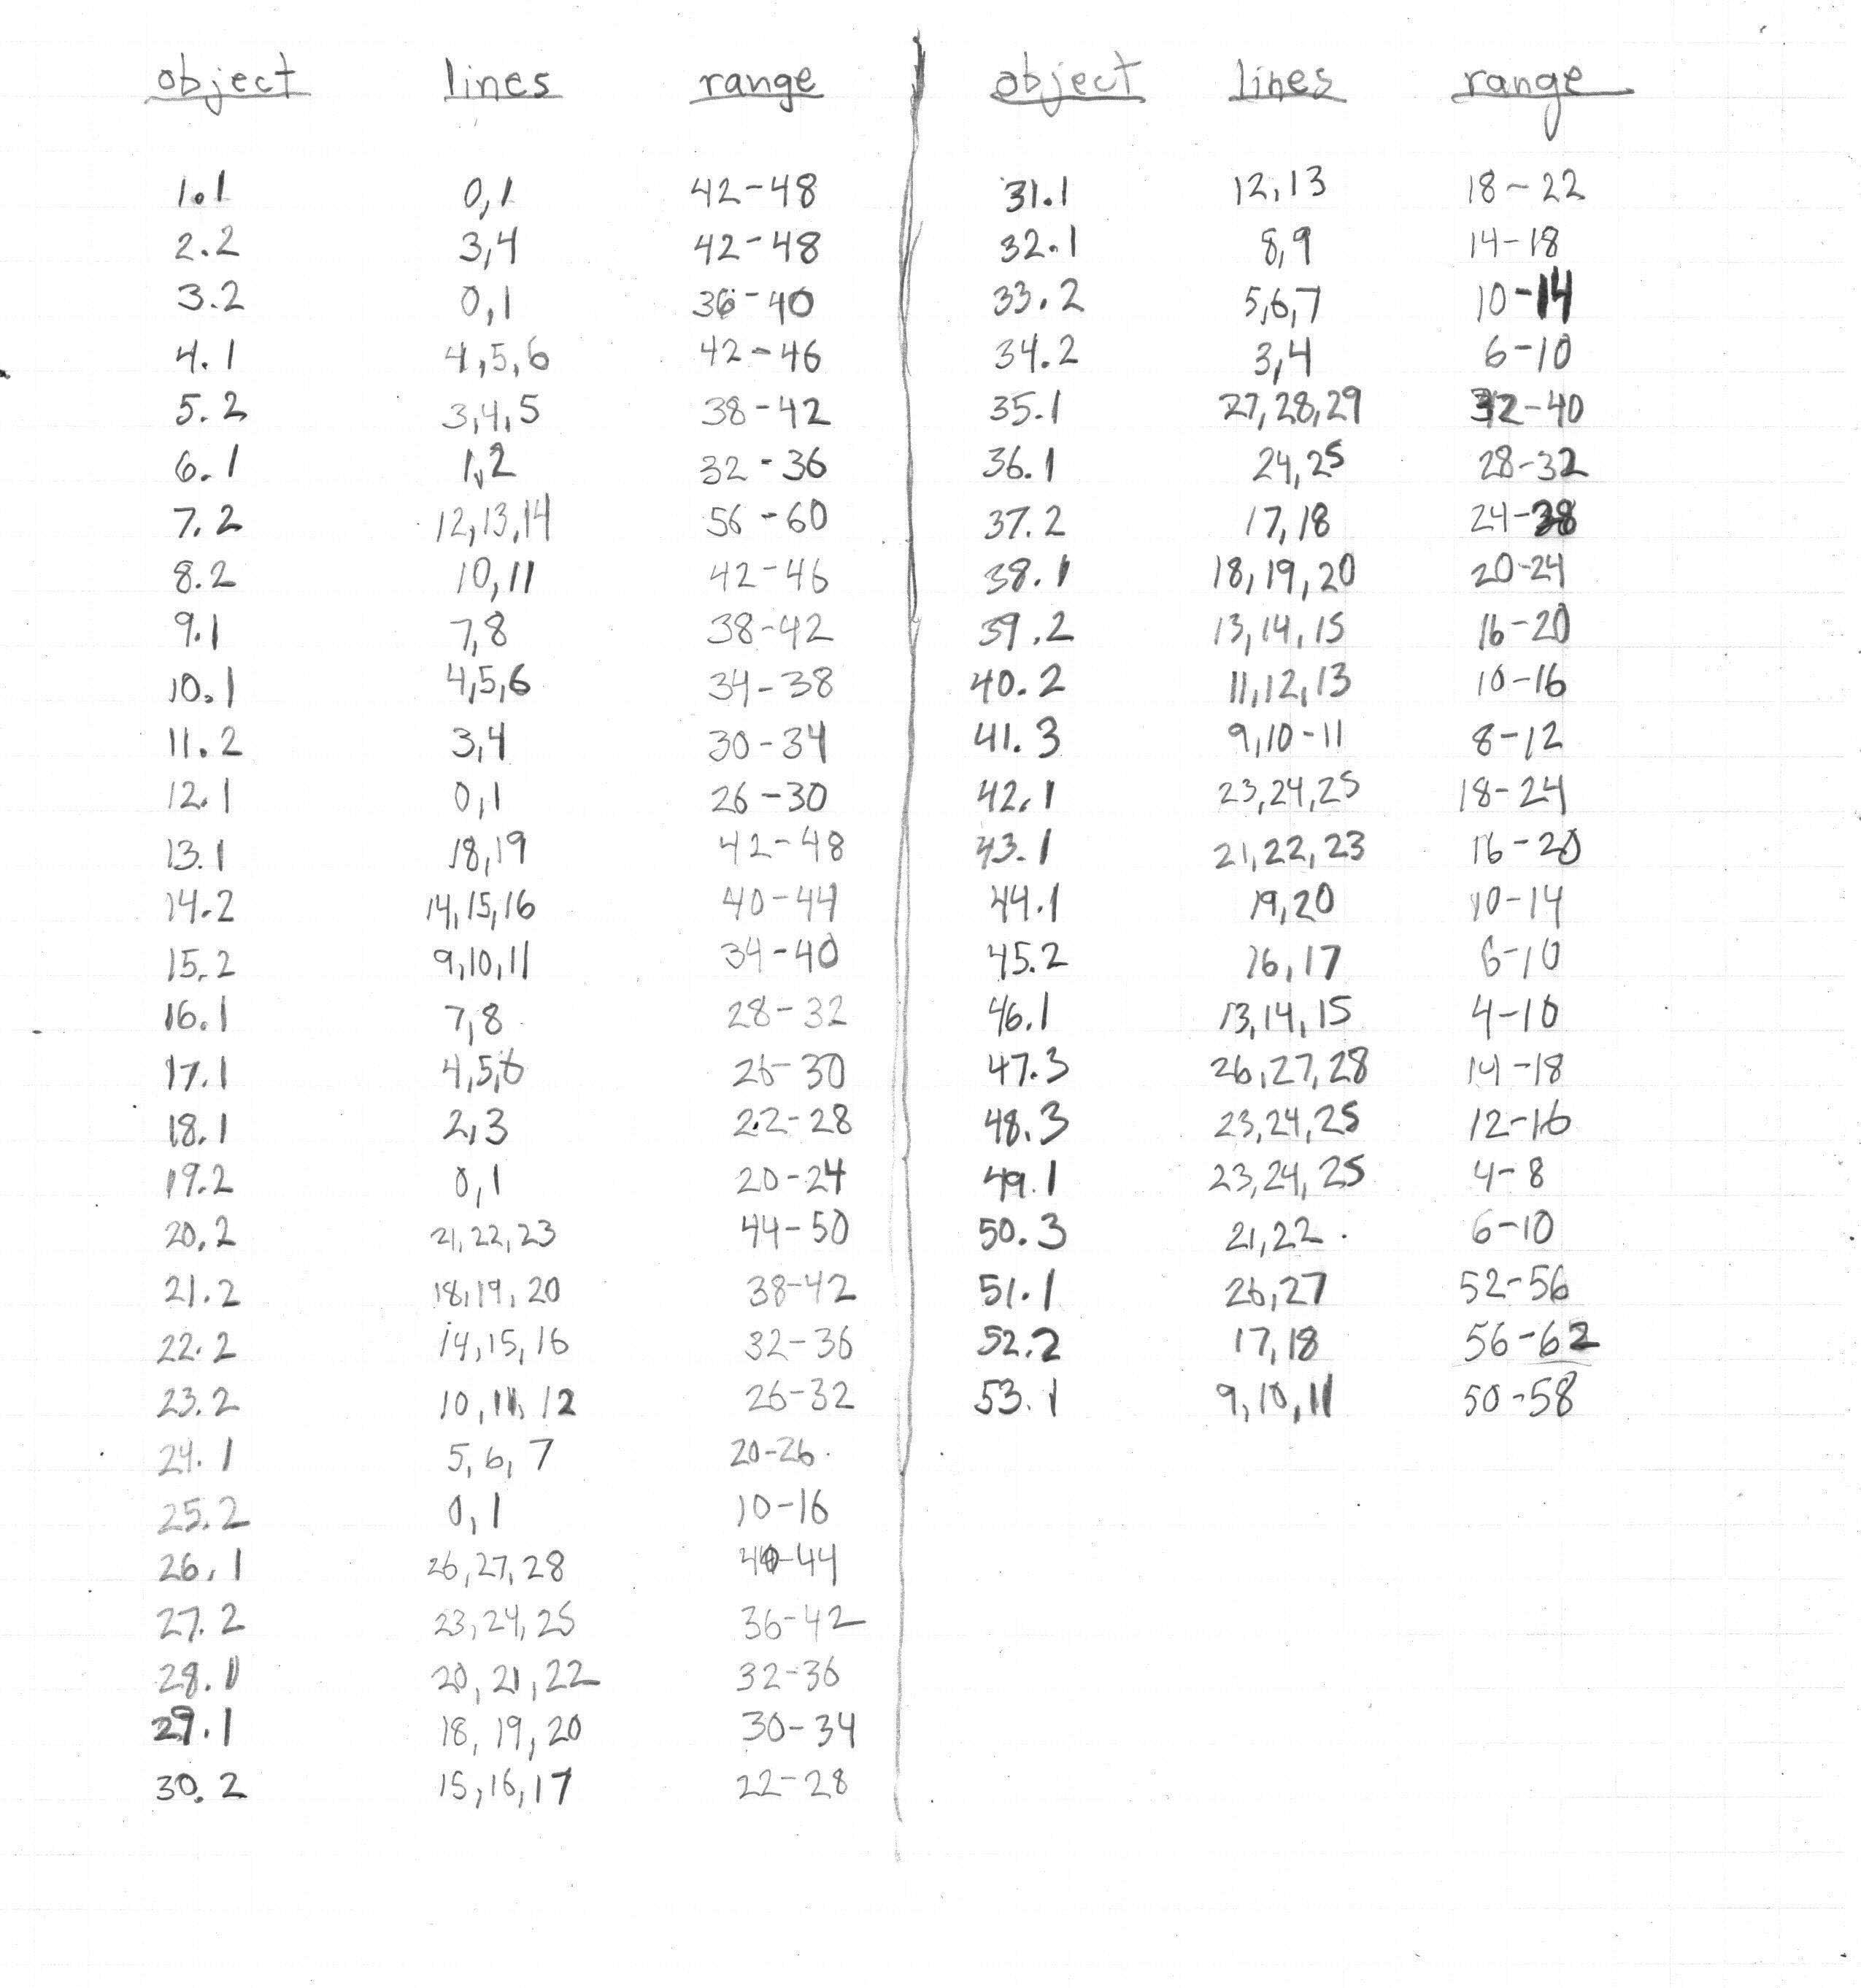 object lines range
1.1 0,1 42-48
2.2 3,4 42-48
3.2 0,1 36-40
4.1 4,5,6 42-46
5.2 3,4,5 38-42
6.1 1,2 32-36
7.2 12,13,14 56-60
8.2 10,11 42-46
9.1 7,8 38-42
10.1 4,5,6 34-38
11.2 3,4 30-34
12.1 0,1 26-30
13.1 18,19 42-48
14.2 14,15,16 40-44
15.2 9,10,11 34-40
16.1 7,8 28-32
17.1 4,5,6 26-30
18.1 2,3 22-28
19.2 0,1 20-24
20.2 21,22,23 44-50
21.2 18,19,20 38-42
22.2 14,15,16 32-36
23.2 10,11,12 26-32
24.1 5,6,7 20-26
25.2 0,1 10-16
26.1 26,27,28 40-44
27.2 23,24,25 36-42
28.1 20,21,22 32-36
29.1 18,19,20 30-34
30.2 15,16,17 22-28
object lines range
31.1 12,13 18-22
32.1 8,9 14-18
33.2 5,6,7 10-14
34.2 3,4 6-10
35.1 27,28,29 32-40
36.1 24,25 28-32
37.2 17,18 24-28
38.1 18,19,20 20-24
39.2 13,14,15 16-20
40.2 11,12,13 10-16
41.3 9,10-11 8-12
42.1 23,24,25 18-24
43.1 21,22,23 16-20
44.1 19,20 10-14
45.2 16,17 6-10
46.1 13,14,15 4-10
47.3 26,27,28 14-18
48.3 23,24,25 12-16
49.1 23,24,25 4-8
50.3 21,22 6-10
51.1 26,27 52-56
52.2 17,18 56-62
53.1 9,10,11 50-58